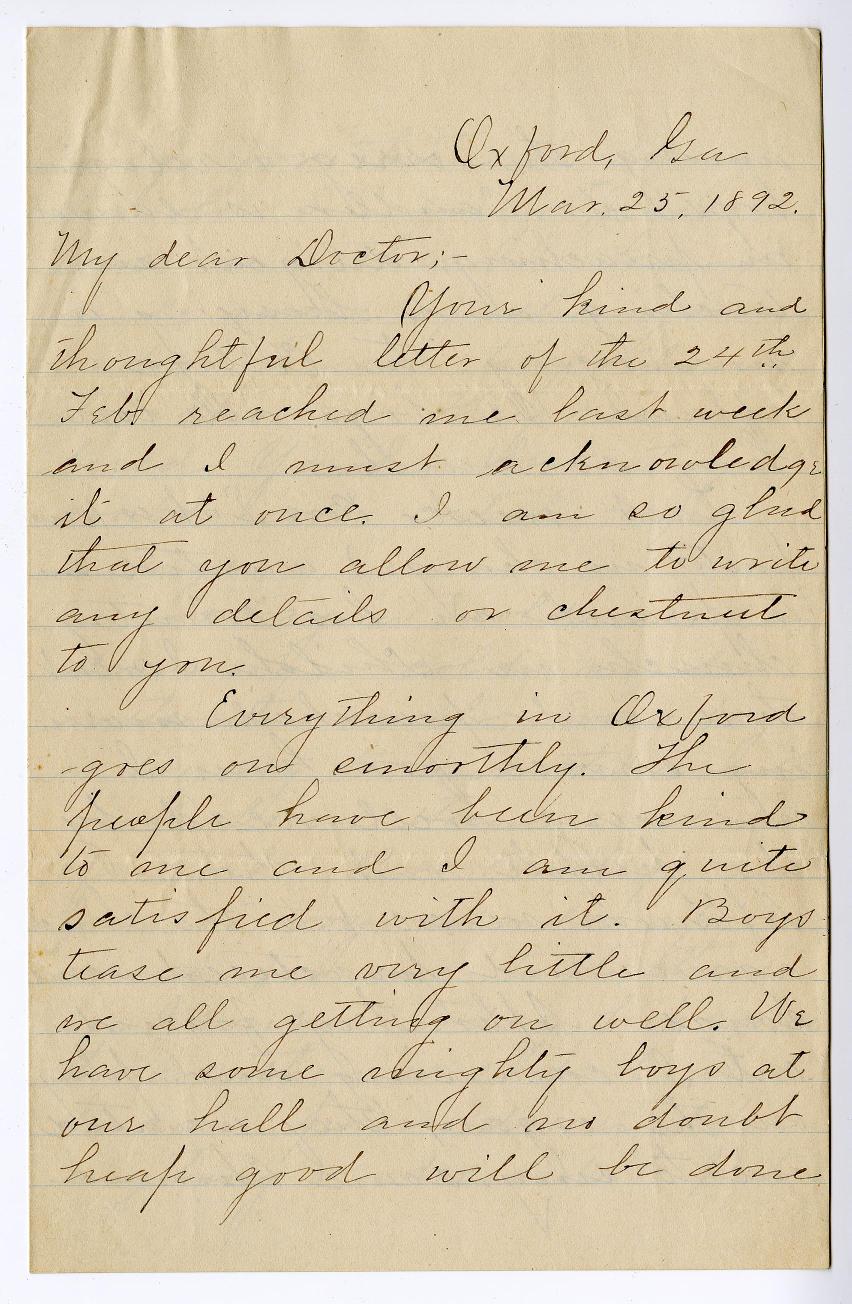 Oxford, Ga
Mar. 25, 1892.
My dear Doctor;-
Your kind and
thoughtful letter of the 24th
Feb. reached me last week
and I must acknowledge
it at once. I am so glad
that you allow me to write
any details or chestnut
to you.
Everything in Oxford
goes on smoothly. The
people have been kind
to me and I am quite
satisfied with it. Boys
tease me very little and
we all getting on well. We
have some mighty boys at
our hall and no doubt
heap good will be done